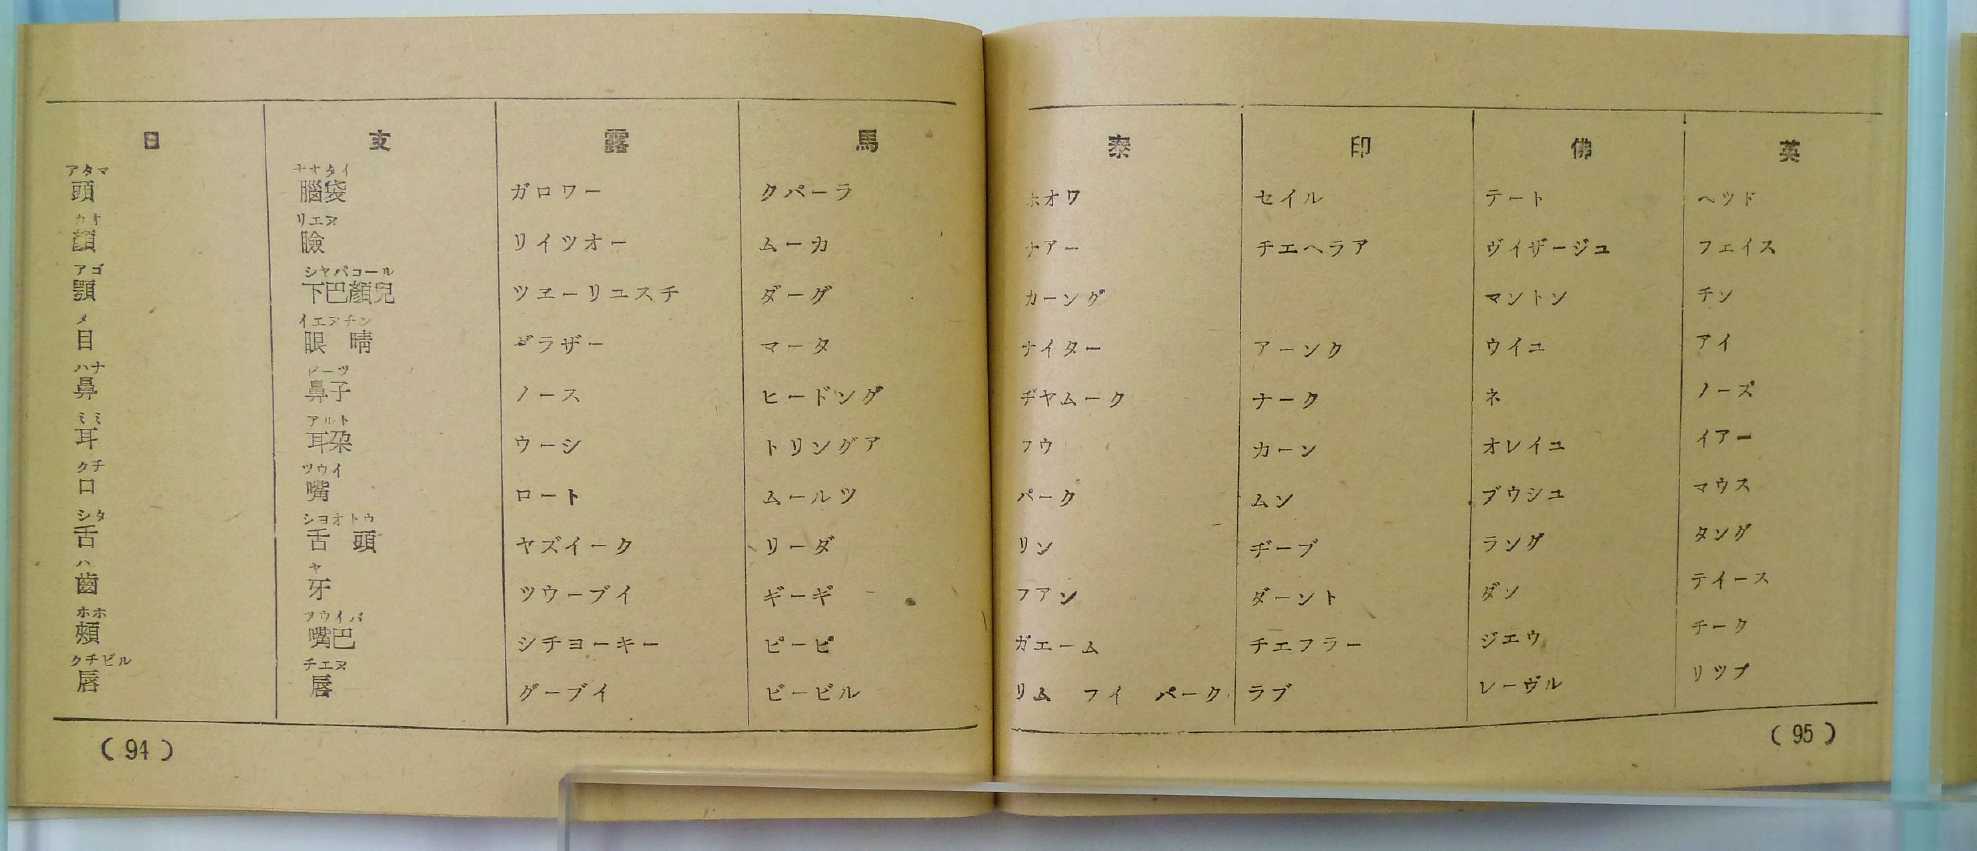 日 支 露 馬 泰 印 佛 英
アタマ ナオタイ
頭 腦袋 ガロワー クパーラ ホオワ セイル テート ヘツド
カオ リエヌ
顔 臉 リイツオー ムーカ ナアー チエヘラア ヴイザージユ フェイス
アゴ シヤパコール
顎 下巴顏兒 ツエーリユスチ ダーグ カーング マントン チン
メ イエヌチン
目 眼 晴 グラザー マータ ナイター アーンク ウイユ アイ
ハナ ビーツ
鼻 鼻子 ノース ヒードング ヂヤムーク ナーク ネ ノーズ
ミミ アルト
耳 耳朶 ウーシ トリングア フウ カーン オレイユ イアー
クチ ツウイ
口 嘴 ロート ムールツ パーク ムン ブウシユ マウス
シタ シヨオトウ
舌 舌 頭 ヤズイーク リーダ リン ヂーブ ラング タング
ハ ヤ
齒 牙 ツウーブイ ギーギ フアン ダーント ダン テイース
ホホ ツウイバ
頰 嘴巴 シチヨーキー ピーピ ガエーム チエフラー ジエウ チーク
クチビル チエヌ
唇 唇 グーブイ ビービル リム フイ パーク ラブ レーヴル リツプ
(94) (95)